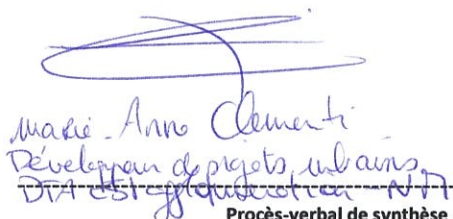 Marie-Anne Clementi
Développeur de projets urbains
DTA EST agglomération - NM
Procès-verbal de synthèse